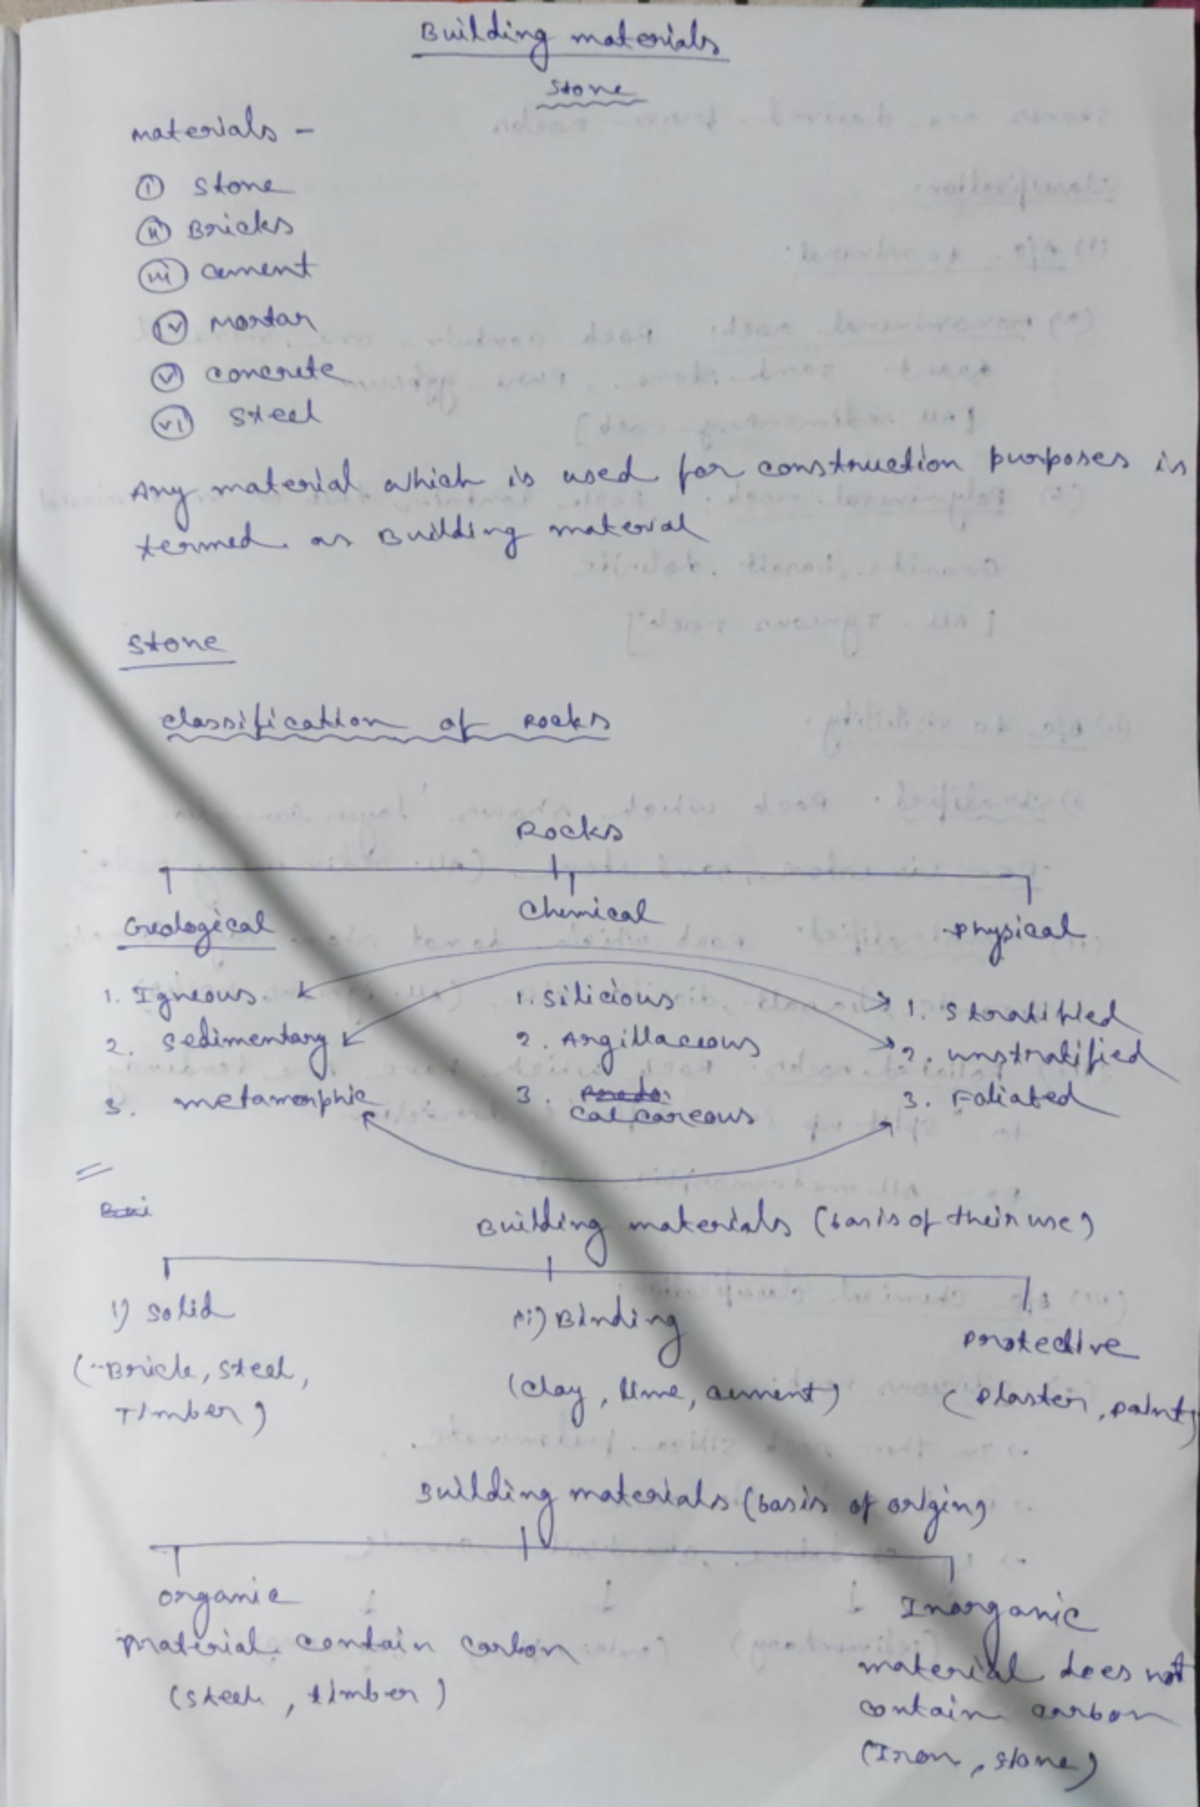 Building materials
Stone
materials -
(i) stone
(ii) Bricks
(iii) cement
(iv) mortar
(v) concrete
(vi) steel
Any material which is used for construction purposes is
termed as Building material
Stone
classification of Rocks
Rocks
Geological Chemical Physical
1. Igneous 1. Silicious 1. Stratified
2. Sedimentary 2. Argillaceous 2. unstratified
3. metamorphic 3. calcareous 3. Foliated
Building materials (basis of their use)
i) Solid ii) Binding Protective
(Brick, Steel, (clay, lime, cement) (Plaster, paint)
Timber)
Building materials (basis of origin)
organic Inorganic
material contain carbon material does not
(Steel, timber) contain carbon
(Iron, stone)